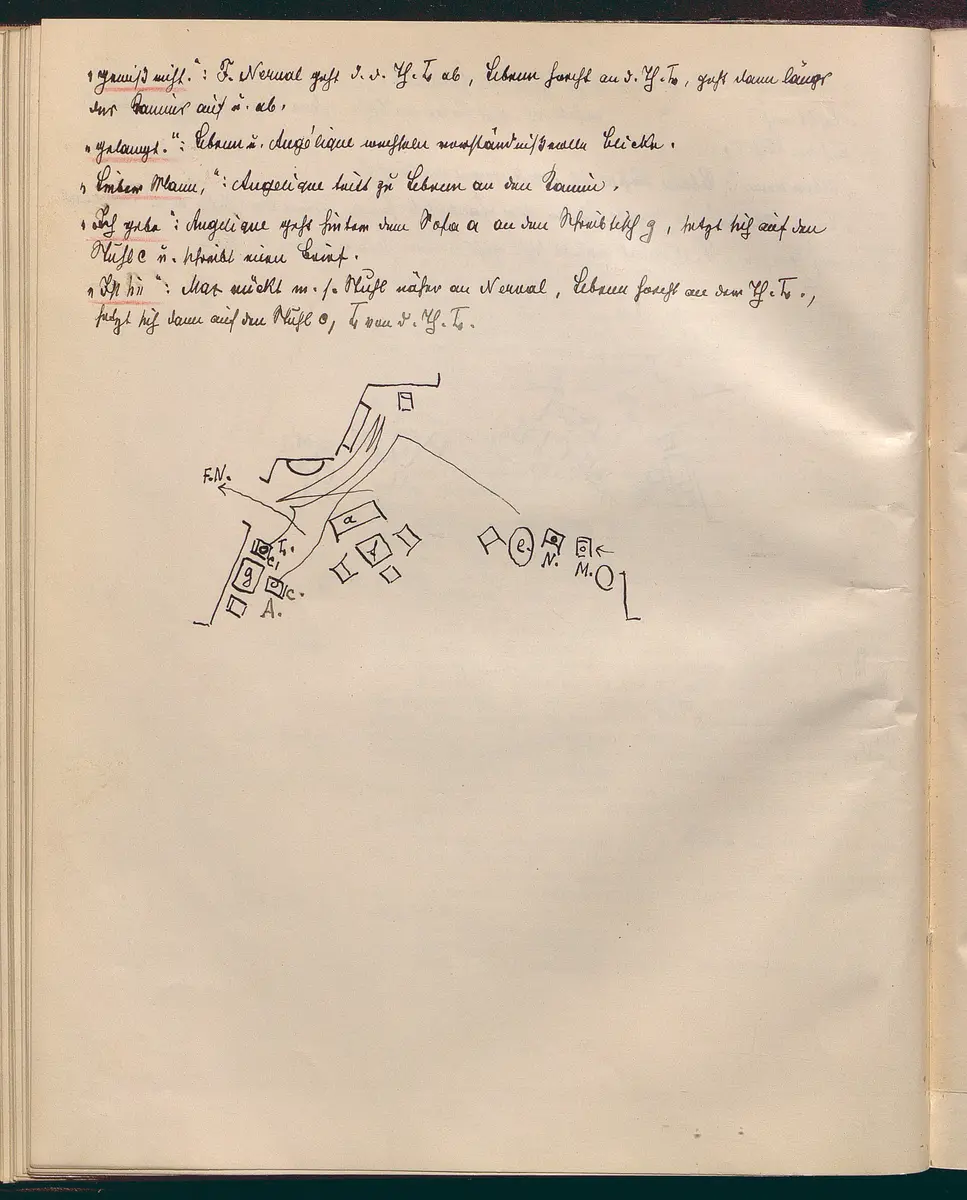 „gewiß nicht.“: F. Nerval geht d. d. Th. L ab, Lebrun horcht an d. Th. L, geht dann längs
des Kamins auf u. ab.
„gelangt.“: Lebrun u. Angélique wechseln verständnißvolle Blicke.
„Lieber Mann,“: Angelique tritt zu Lebrun an den Kamin.
„Ich gebe“: Angelique geht hinter dem Sofa a an den Schreibtisch g, setzt sich auf den
Stuhl c u. schreibt einen Brief.
„Ist sie“: Max rückt m. s. Stuhl näher an Nerval, Lebrun horcht an der Th. L.,
setzt sich dann auf den Stuhl c, L von d. Th. L.
F.N.
a
L.
c,
g
c.
A.
f
e.
N.
M.